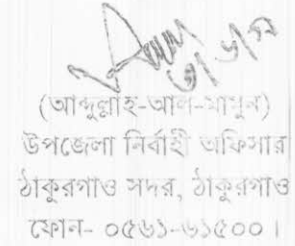 ৩/৬/১৯
(আব্দুল্লাহ-আল-মামুন)
উপজেলা নির্বাহী অফিসার
ঠাকুরগাও সদর, ঠাকুরগাও
ফোন- ০৫৬১-৬১৫০০।